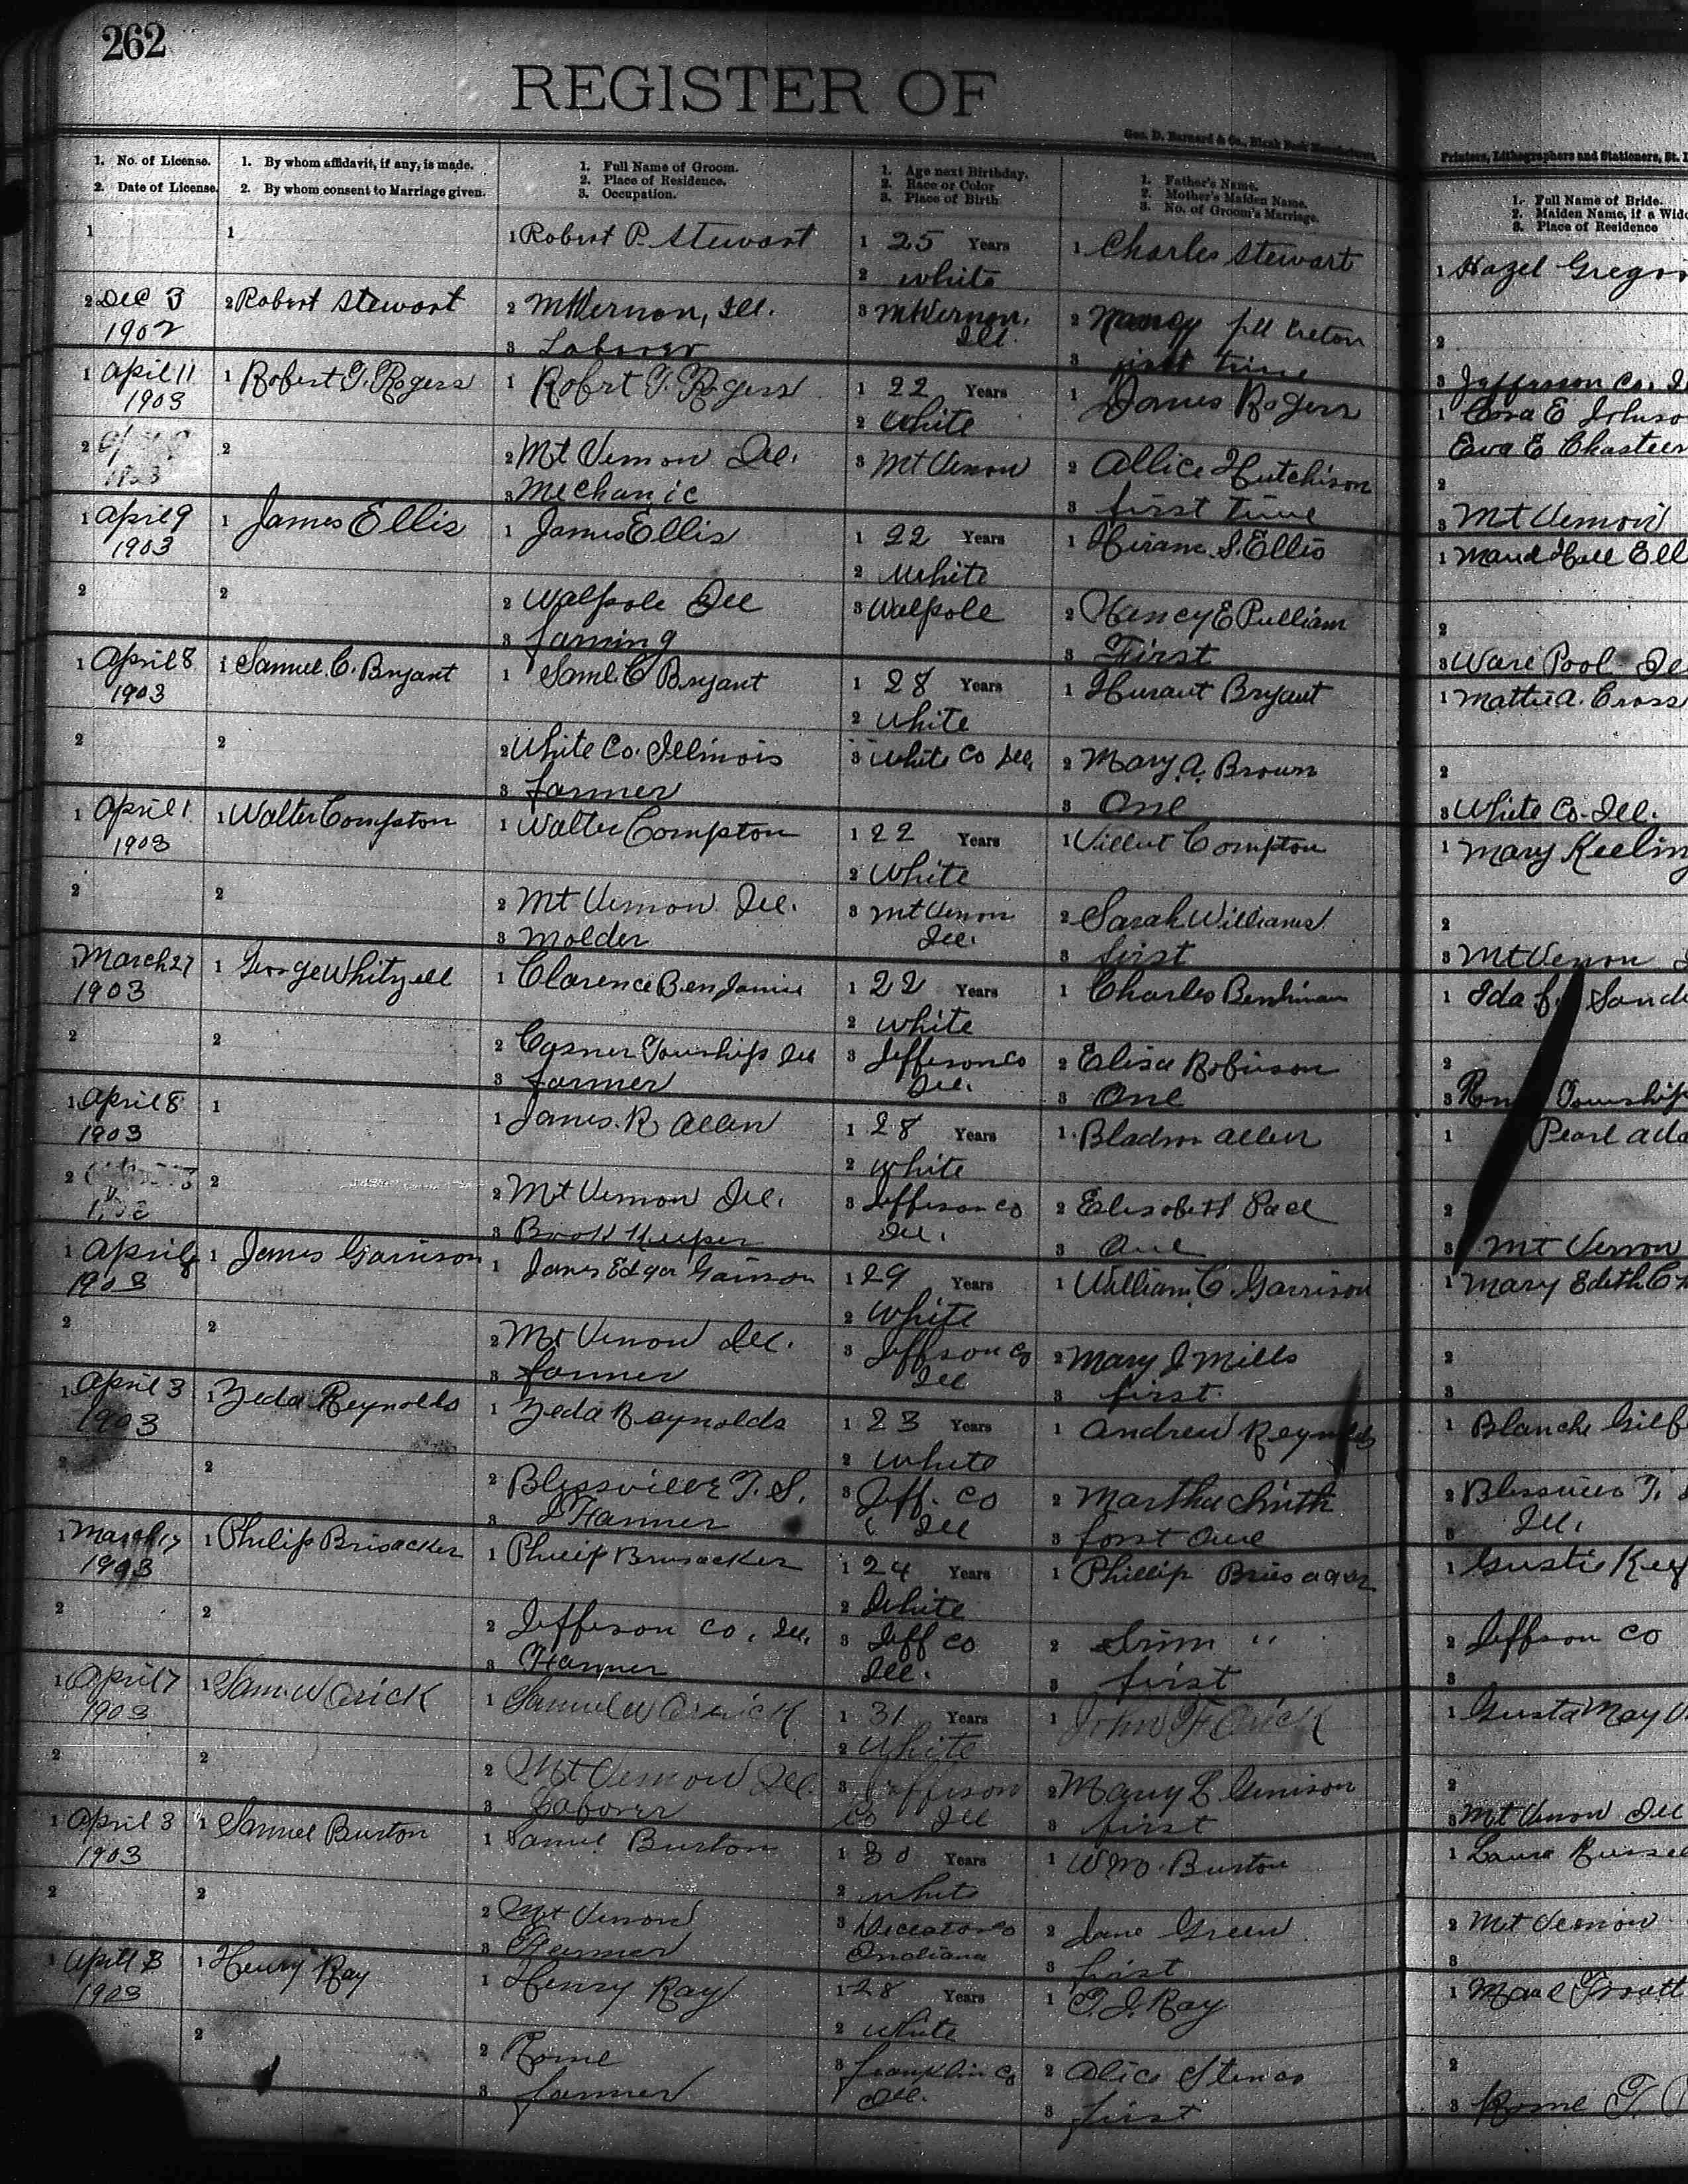 262
REGISTER OF
Geo. D. Barnard & Co., Blank Book Manufacturers,
Printers, Lithographers and Stationers, St.
1. No. of License.
2. Date of License.
1. By whom affidavit, if any, is made.
2. By whom consent to Marriage given.
1. Full Name of Groom.
2. Place of Residence.
3. Occupation.
1. Age next Birthday.
2. Race or Color
3. Place of Birth
1. Father's Name.
2. Mother's Maiden Name.
3. No. of Groom's Marriage.
1. Full Name of Bride.
2. Maiden Name, if a Wid
3. Place of Residence
1
2 Dec 3
1902
1
2 Robert Stewart
1 Robert P. Stewart
2 Mt Vernon, Ill.
3 Laborer
1 25 Years
2 White
3 Mt Vernon,
Ill.
1 Charles Stewart
2 Nancy
3 first time
1 Hazel Grego
2
3 Jefferson Co.
1 April 11
1903
2
1903
1 Robert T. Rogers
2
1 Robrt T. Rogers
2 Mt Vernon Ill.
3 Mechanic
1 22 Years
2 White
3 Mt Vernon
1 James Rogers
2 Allice Hutchison
3 first time
1 Cora E Johnso
Eva E Chasteen
2
3 Mt Vernon
1 April 9
1903
2
1 James Ellis
2
1 James Ellis
2 Walpole Ill
3 farming
1 22 Years
2 White
3 Walpole
1 Hiram S. Ellis
2 Nency E Pulliam
3 First
1 Maud Hall Ell
2
3 Ware Pool Ill
1 April 8
1903
2
1 Samuel C. Bryant
2
1 Saml. C Bryant
2 White Co. Illinois
3 farmer
1 28 Years
2 White
3 White Co Ill,
1 Bryant
2 Mary A. Brown
3 One
1 Mattie A. Cross
2
3 White Co. Ill.
1 April 1
1903
2
1 Walter Compton
2
1 Walter Compton
2 Mt Vernon Ill.
3 Molder
1 22 Years
2 White
3 Mt Vernon
Ill.
1 Compton
2 Sarah Williams
3 first
1 Mary Keelin
2
3 Mt Vernon
1 March 27
1903
2
1 George Whitzell
2
1 Clarence Benjamin
2 Casner Township Ill
3 farmer
1 22 Years
2 White
3 Jefferson Co
Ill.
1 Charles
2 Elisa Robinson
3 One
1 Ida
2
3 Township
1 April 8
1903
2
1
2
1 James. R Allen
2 Mt Vernon Ill.
3 Book Keeper
1 28 Years
2 White
3 Jefferson Co
Ill.
1 Allen
2 Elisabeth Pace
3 One
1 Pearl Ada
2
3 Mt Vernon
1 April 8
1903
2
1 James Garrison
2
1 James Edgar Garrison
2 Mt Vernon Ill.
3 farmer
1 29 Years
2 White
3 Jeffson Co
Ill
1 William C. Garrison
2 Mary J Mills
3 first
1 Mary Edith Ch
2
3
1 April 3
1903
2
1 Zeda Reynolds
2
1 Zeda Reynolds
2 Blissville T. S.
3 Farmer
1 23 Years
2 White
3 Jeff. Co
Ill
1 Andrew Reynolds
2 Martha Smith
3 first One
1 Blanche Gilb
2 T.
3 Ill.
1 March 17
1903
2
1 Philip Brisacker
2
1 Philip Brisacker
2 Jefferson Co, Ill.
3 Farmer
1 24 Years
2 White
3 Jeff Co
Ill.
1 Phillip
2 "
3 first
1 Gustie Key
2 Jeffson Co
3
1 April 7
1903
2
1 Sam. W Orick
2
1 Samuel W Orick
2 Mt Vernon Ill.
3 Laborer
1 31 Years
2 White
3 Jefferson
Co Ill
1 John F Orick
2 Mary E.
3 first
1 Gusta May
2
3 Mt Vernon Ill
1 April 3
1903
2
1 Samuel Burton
2
1 Samuel Burton
2 Mt Vernon
3 Farmer
1 30 Years
2 White
3 Decatur Co
Indiana
1 Wm. Burton
2 Jane Green
3 first
1 Laura Russe
2 Mt Vernon
3
1 April 3
1903
1 Henry Ray
2
1 Henry Ray
2 Rome
3 farmer
1 28 Years
2 White
3 Franklin Co
Ill.
1 Ray
2 Alice
3 first
1 Troutt
2
3 Rome T.